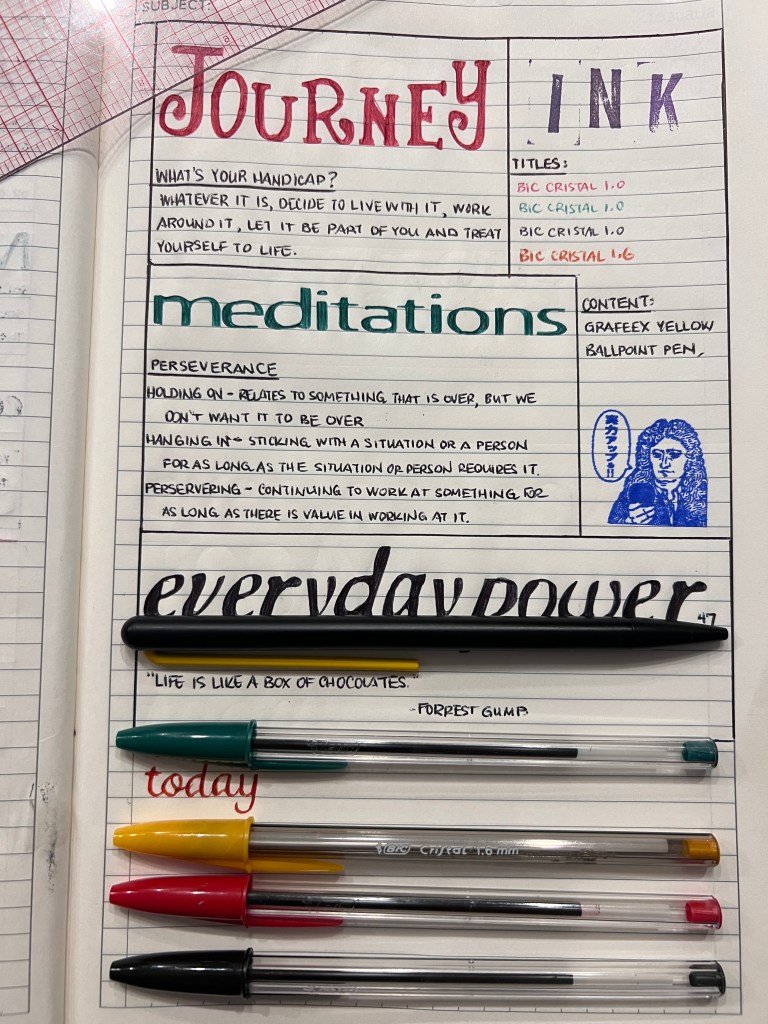 SUBJECT:
JOURNEY
INK
WHAT'S YOUR HANDICAP?
WHATEVER IT IS, DECIDE TO LIVE WITH IT, WORK
AROUND IT, LET IT BE PART OF YOU AND TREAT
YOURSELF TO LIFE.
TITLES:
BIC CRISTAL 1.0
BIC CRISTAL 1.0
BIC CRISTAL 1.0
BIC CRISTAL 1.6
meditations
PERSEVERANCE
HOLDING ON - RELATES TO SOMETHING THAT IS OVER, BUT WE
DON'T WANT IT TO BE OVER
HANGING IN - STICKING WITH A SITUATION OR A PERSON
FOR AS LONG AS THE SITUATION OR PERSON REQUIRES IT.
PERSERVERING - CONTINUING TO WORK AT SOMETHING FOR
AS LONG AS THERE IS VALUE IN WORKING AT IT.
CONTENT:
GRAFEEX YELLOW
BALLPOINT PEN,
実力アップる!!
everyday power
47
"LIFE IS LIKE A BOX OF CHOCOLATES."
-FORREST GUMP
today
BIC Cristal 1.6 mm